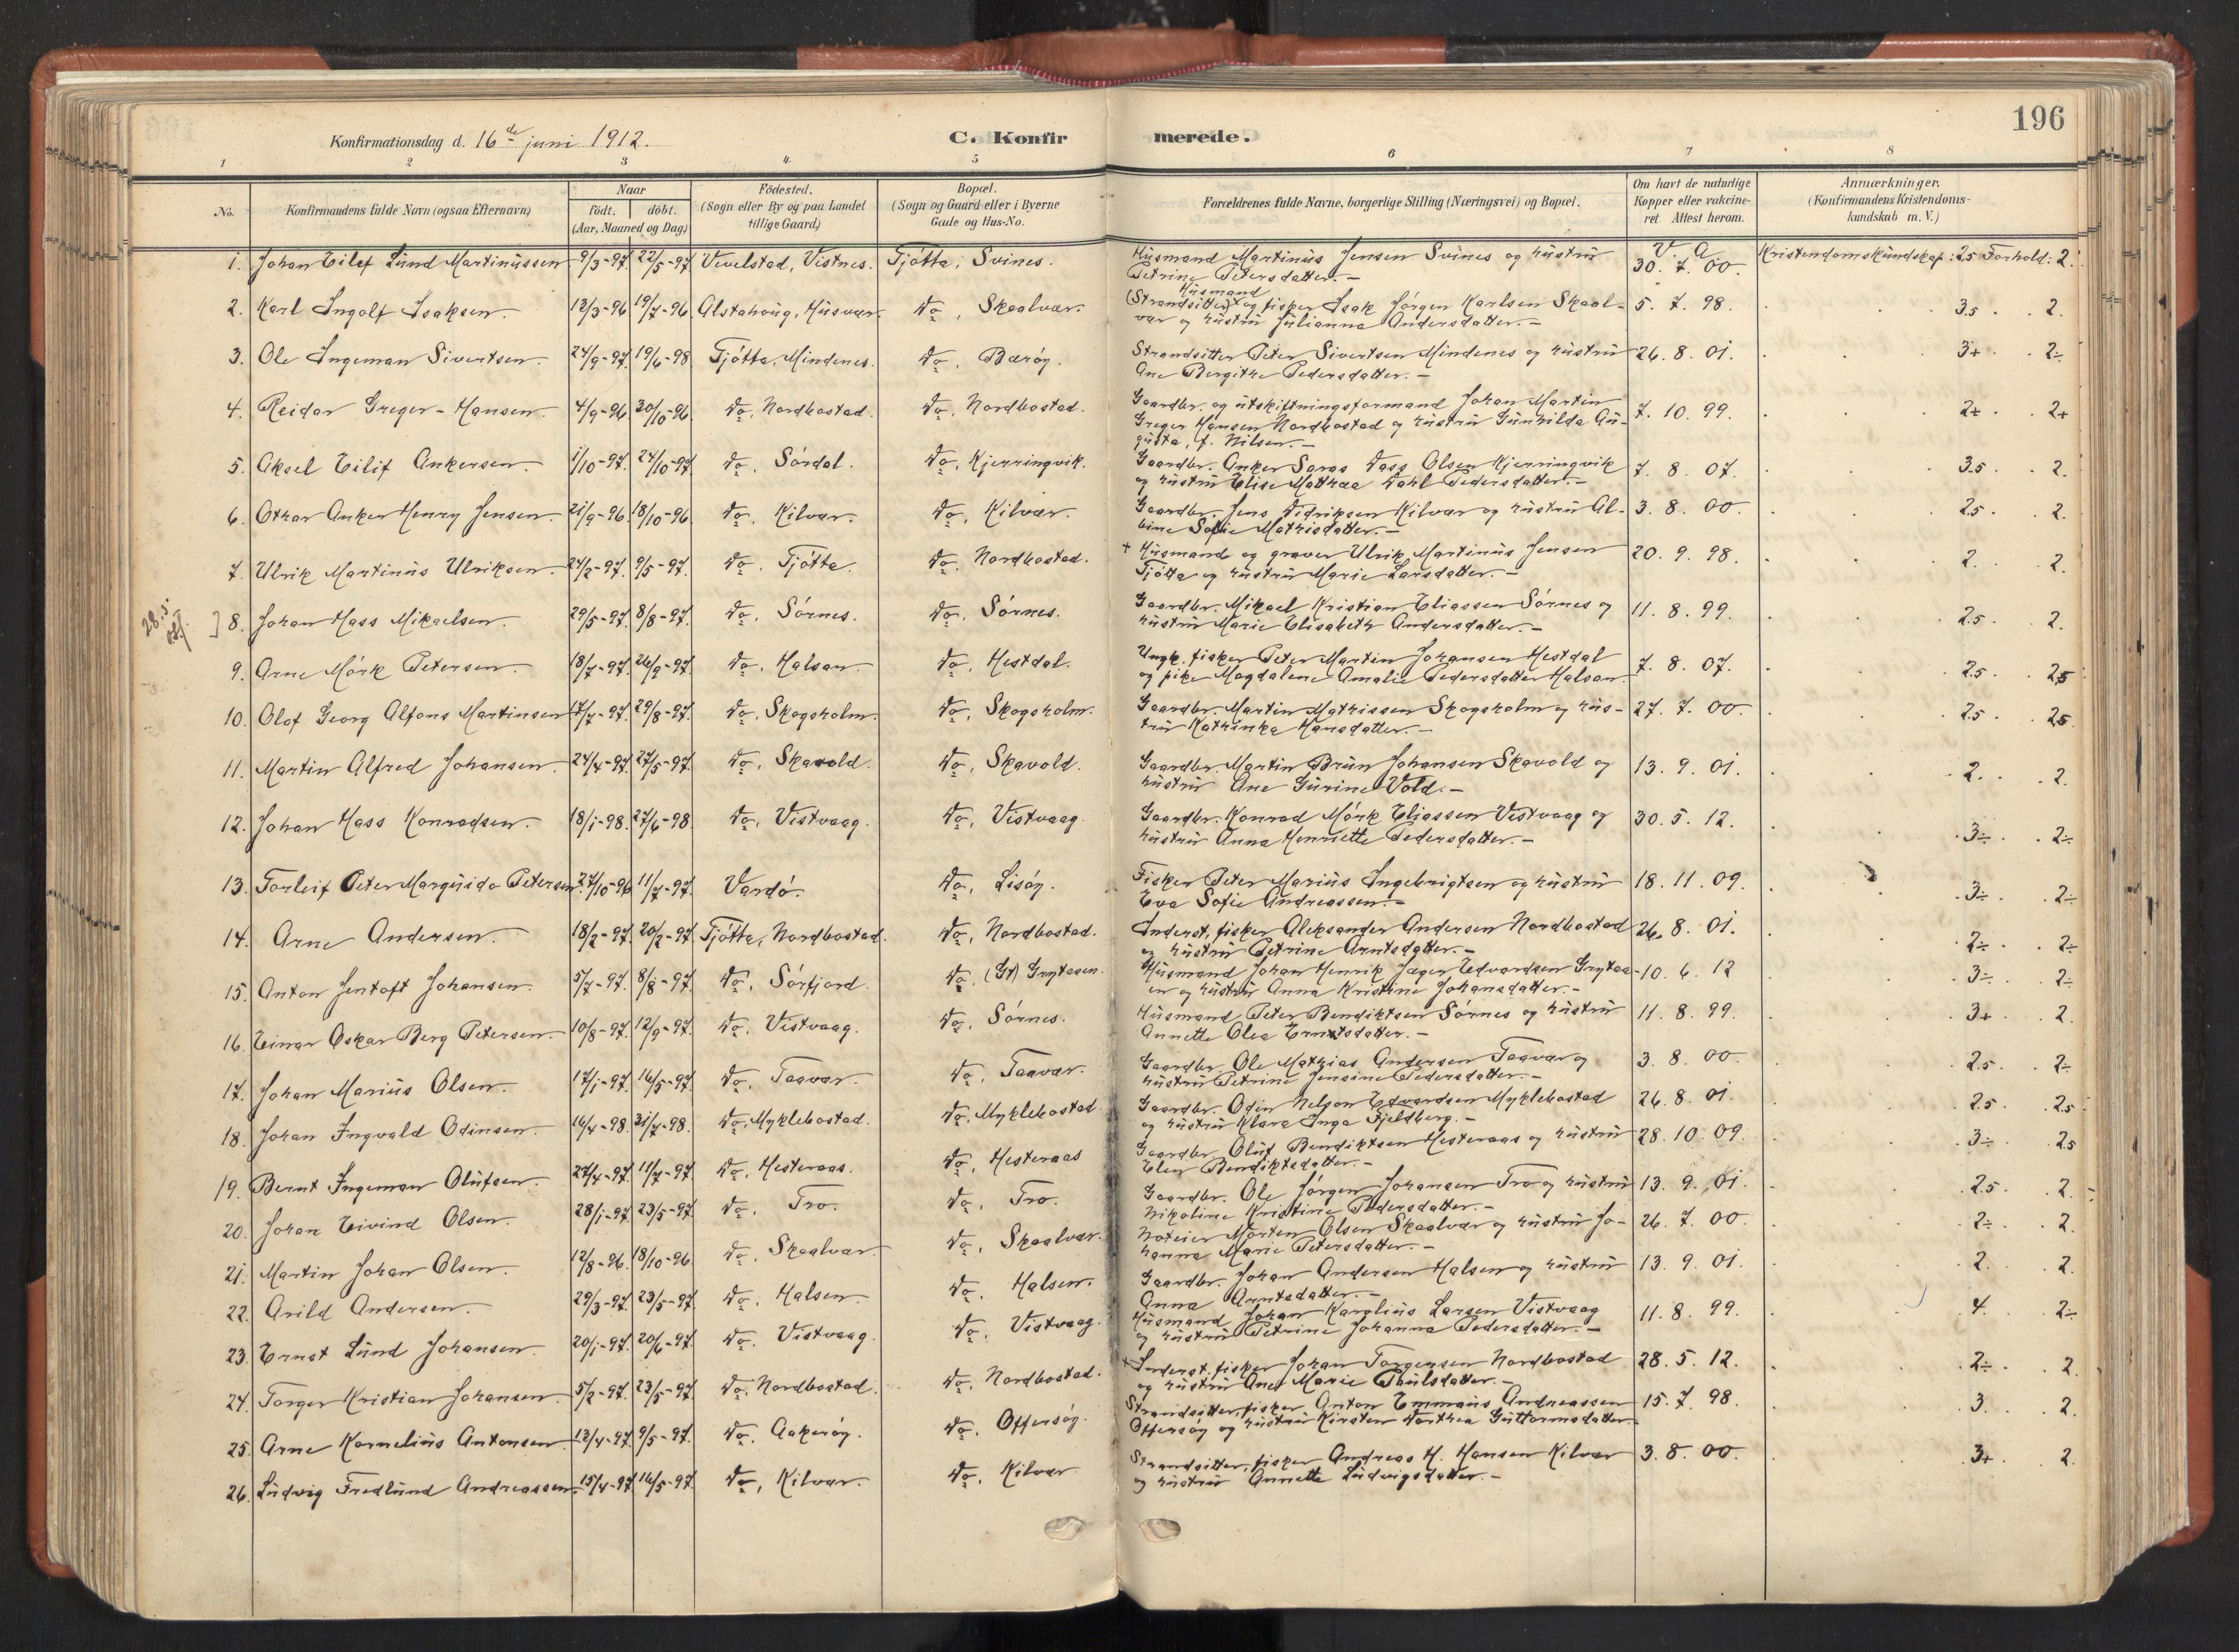 196
Konfirmationsdag d. 16de juni 1912.
C. Konfirmerede.
1 2 3 4. 5 6 7 8
No.
Konfirmandens fulde Navn (ogsaa Efternavn)
Naar
födt. döbt.
(Aar, Maaned og Dag.)
Födested.
(Sogn eller By og paa Landet
tillige Gaard)
Bopæl.
(Sogn og Gaard eller i Byerne
Gade og Hus-No.
Forældrenes fulde Navne, borgerlige Stilling (Næringsvei) og Bopæl.
Om havt de naturlige
Kopper eller vakcine-
ret. Attest herom.
Anmærkninger.
(Konfirmandens Kristendoms-
kundskab m. V.)
1. Johan Eilef Lund Martinussen 9/3-97. 22/5-97 Vevelstad, Vistnes. Tjøtta, Svines. Husmand Martinus Jensen Svines og hustru V. A. Kristendomskundskap: 2.5 Forhold: 2.
Petrine Petersdatter.- 30. 7. 00.
Husmand
2. Karl Ingolf Isaksen. 12/3-96 19/7-96 Alstahoug, Husvær. Do, Skaalvær. (Strandsitter)x og fisker Isak Jørgen Karlsen Skaal- 5. 7. 98. 3.5 2.
vær og hustru Julianna Andersdatter.-
3. Ole Ingeman Sivertsen. 24/9-97. 19/6-98 Tjøtta, Mindenes. Do, Bærøy. Strandsitter Peter Sivertsen Mindenes og hustru 26. 8. 01. 3+ 2÷
Ane Bergithe Pedersdatter.-
4. Reidar Greger-Hansen. 4/9-96 30/10-96. Do, Nordbostad. Do, Nordbostad. Gaardbr. og utskiftningsformand Johan Martin 7. 10. 99. 2÷ 2+
Greger Hansen Nordbostad og hustru Gunhilda Au-
gusta, f. Nilsen.-
5. Aksel Eilif Ankersen. 1/10-97. 24/10-97. Do, Sørdal. Do, Kjerringvik. Gaardbr. Anker Saras Dass Olsen Kjerringvik 7. 8. 07. 3.5 2.
og hustru Elise Matthea Dahl Pedersdatter.-
6. Othar Anker Henry Jensen. 21/9-96. 18/10-96. Do, Kilvær. Do, Kilvær. Gaardbr. Jens Didriksen Kilvær og hustru Al- 3. 8. 00. 2.5 2.
bine Sofie Mathisdatter.-
7. Ulrik Martinus Ulriksen. 24/2-97. 9/5-97. Do, Tjøtta. Do, Nordbostad. + Husmand og graver Ulrik Martinus Jensen 20. 9. 98. 2. 2.
Tjøtta og hustru Marie Larsdatter.-
28.5.
8. Johan Hass Mikaelsen. 29/5-97. 8/8-97. Do, Sørnes. Do, Sørnes. Gaardbr. Mikael Kristian Eliassen Sørnes og 11. 8. 99. 2.5 2.
hustru Marie Elisabeth Andersdatter.-
9. Arne Mørk Petersen. 18/7-97. 26/9-97. Do, Halsan. Do, Hestdal. Ungk. fisker Peter Martin Johansen Hestdal 7. 8. 07. 2.5 2,5
og pike Magdalene Amalie Pedersdatter Halsan.
10. Olaf Georg Alfons Martinsen 17/7-97. 29/8-97. Do, Skogsholm. Do, Skogsholm. Gaardbr. Martin Mathissen Skogsholm og hus- 27. 7. 00. 2.5 2,5.
tru Kathinka Hansdatter.-
11. Martin Alfred Johansen. 24/4-97. 27/5-97. Do, Skavold. Do, Skavold. Gaardbr. Martin Brun Johansen Skavold og 13. 9. 01. 2. 2.
hustru Ane Gurine Vold.-
12. Johan Hass Konradsen. 18/1-98. 27/6-98. Do, Vistvaag. Do, Vistvaag. Gaardbr. Konrad Mørk Eliassen Vistvaag og 30. 5. 12. 3÷ 2÷
hustru Anna Henriette Pedersdatter.-
13. Torleif Peter Marquida Petersen 27/10-96 11/7-97. Vardø. Do, Lisøy. Fisker Peter Marius Ingebrigtsen og hustru 18. 11. 09. 3÷ 2÷
Eva Sofie Andreassen.-
14. Arne Andersen. 18/2-97. 20/2-97. Tjøtta, Nordbostad. Do, Nordbostad. Inderst, fisker Aleksander Andersen Nordbostad 26. 8. 01. 2÷ 2÷
og hustru Petrine Arntsdatter.-
15. Anton Jentoft Johansen. 5/7-97. 8/8-97. Do, Sørfjord. Do, (Gt) Grytaaen. Husmand Johan Henrik Jæger Edvardsen Grytaa- 10. 6. 12 3÷ 2÷
en og hustru Anna Kristine Johansdatter.-
16. Einar Oskar Berg Petersen. 10/8-97. 12/9-97. Do, Vistvaag. Do, Sørnes. Husmand Peter Bendiktsen Sørnes og hustru 11. 8. 99. 3+ 2.
Annette Olea Erntsdatter.-
17. Johan Marius Olsen. 17/1-97. 16/5-97. Do, Taavær. Do, Taavær. Gaardbr. Ole Mathias Andersen Taavær og 3. 8. 00. 2.5 2÷
hustru Petrine Jensine Pedersdatter.-
18. Johan Ingvald Odinsen. 16/4-98. 31/7-98. Do, Myklebostad. Do, Myklebostad. Gaardbr. Odin Nelson Edvardsen Myklebostad 26. 8. 01. 2.5 2.5
og hustru Klara Inga Fjeldberg.-
19. Bernt Ingeman Olufsen. 27/4-97. 11/7-97. Do, Hesteraas. Do, Hesteraas Gaardbr. Oluf Bendiktsen Hesteraas og hustru 28. 10. 09. 3÷ 2.5
Elen Bendiktsdatter.-
20. Johan Eivind Olsen. 28/1-97. 23/5-97. Do, Tro. Do, Tro. Gaardbr. Ole Jørgen Johansen Tro og hustru 13. 9. 01. 2.5. 2.
Nikoline Kristine Pedersdatter.-
21. Martin Johan Olsen. 12/8-96. 18/10-96 Do, Skaalvær. Do, Skaalvær. Noteier Morten Olsen Skaalvær og hustru Jo- 26. 7. 00. 2÷ 2.
hanna Marie Petersdatter.-
22. Arild Andersen. 29/3-97. 23/5-97. Do, Halsen. Do, Halsen. Gaardbr. Johan Andersen Halsen og hustru 13. 9. 01. 2. 2.
Anna Arntsdatter.-
23. Ernst Lund Johansen. 20/1-97. 20/6-97. Do. Vistvaag. Do, Vistvaag. Husmand Johan Karolius Larsen Vistvaag 11. 8. 99. 4. 2÷
og hustru Petrine Johanna Pedersdatter.-
24. Torger Kristian Johansen. 5/2-97. 23/5-97. Do. Nordbostad. Do, Nordbostad. + Inderst, fisker Johan Torgersen Nordbostad 28. 5. 12. 2÷ 2.
og hustru Ane Marie Paulsdatter.-
25. Arne Kornelius Antonsen. 13/4-97. 9/5-97. Do. Aakerøy. Do, Offersøy. Strandsitter, fisker Anton Emmaus Andreassen 15. 7. 98. 3. 2.
Offersøy og hustru Kirsten Dorthea Guttormsdatter.
26. Ludvig Fredlund Andreassen. 15/4-97. 16/5-97. Do, Kilvær. Do, Kilvær. Strandsitter, fisker Andreas H. Hansen Kilvær 3. 8. 00. 3+ 2.
og hustru Annette Ludvigsdatter.-